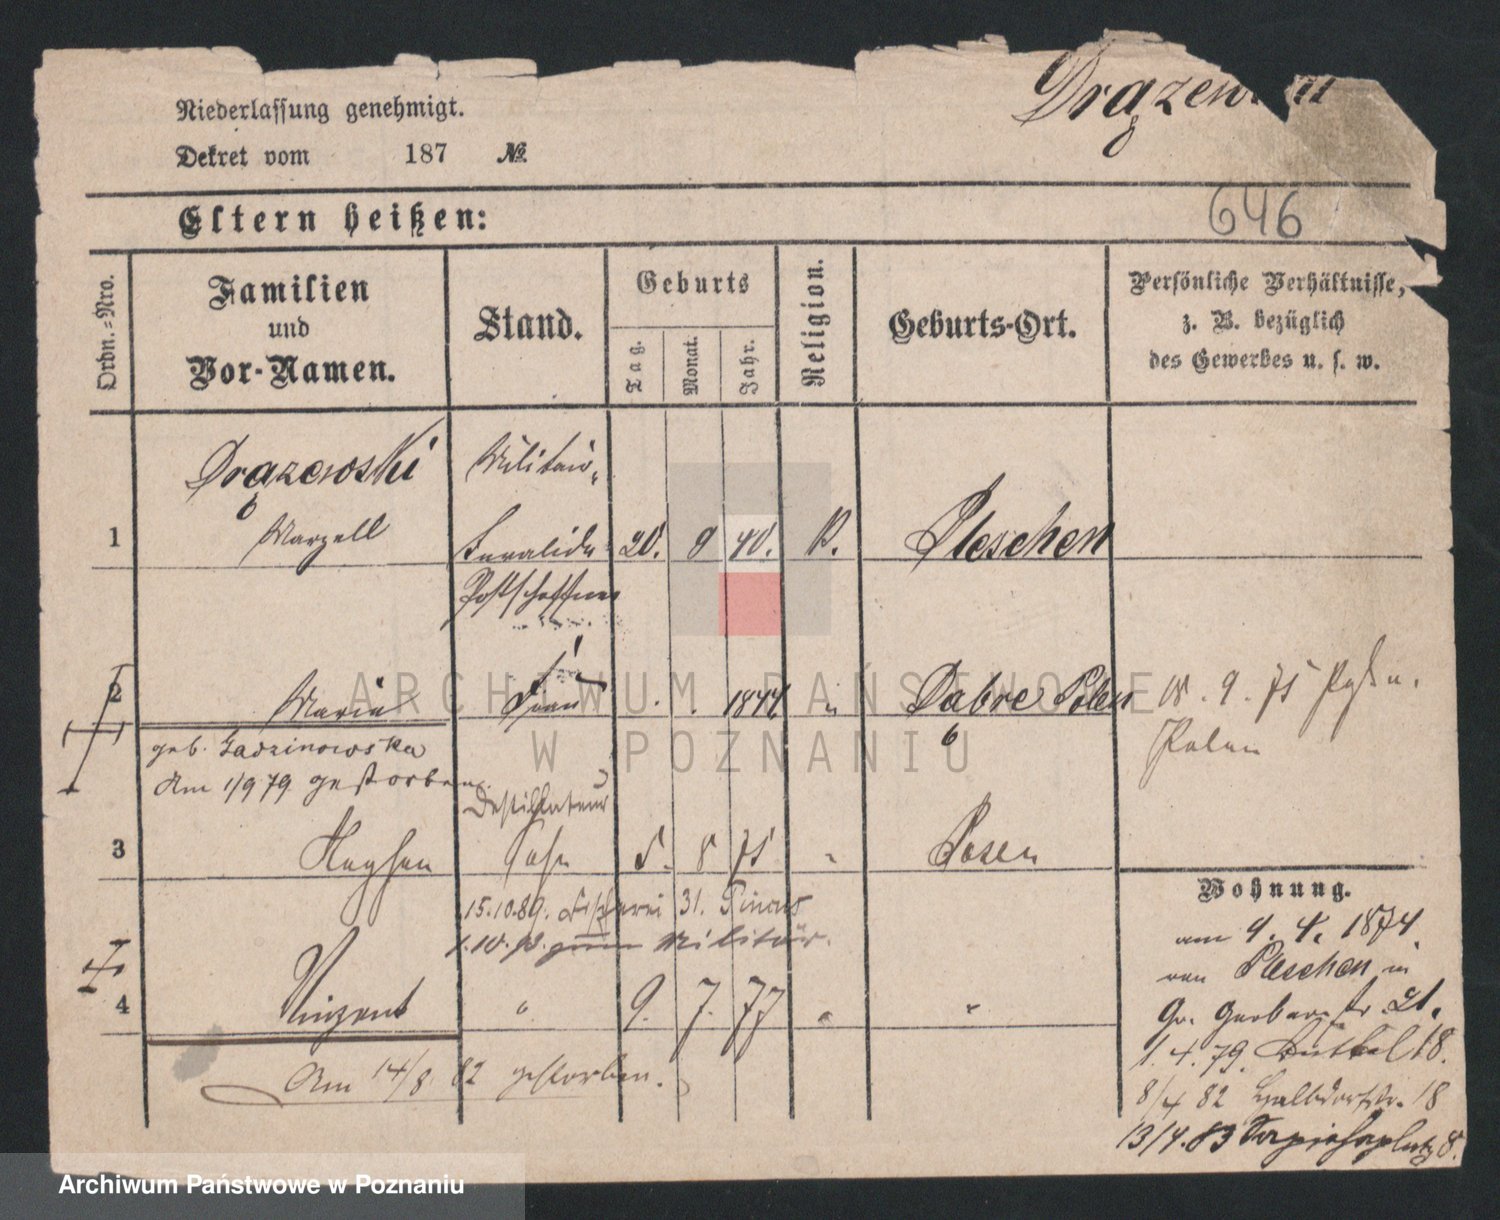 Niederlassung genehmigt.
Drązew
Dekret vom 187 №
646
Eltern heißen:
Ordn.=Nro.
Familien
und
Vor-Namen.
Stand.
Geburts
Tag.
Monat.
Jahr.
Religion.
Geburts-Ort.
Persönliche Verhältnisse,
z. B. bezüglich
des Gewerbes u. s. w.
Drązewski Militair-
1 Marzell Invalide 20. 9 40. K. Pleschen
Postschaffner
2 Maria Frau 1844 " Dąbre Polen 18. 9. 75
Polen
geb.
Am 1/9 79 gestorben
Destillateur
3 Sohn 5. 8 75 " Posen
15.10.89. 31.
1.10. zum Militär.
4 Vinzent " 9. 7. 77 " "
Am 14/8 82 gestorben.
Wohnung.
am 9. 4. 1874
von Pleschen in
Gr. Gerberstr 21.
1. 4. 79. 18.
8/4 82 Halbdorfstr. 18
13/4. 83 Sapiehaplatz 8.
ARCHIWUM PAŃSTWOWE
W POZNANIU
Archiwum Państwowe w Poznaniu